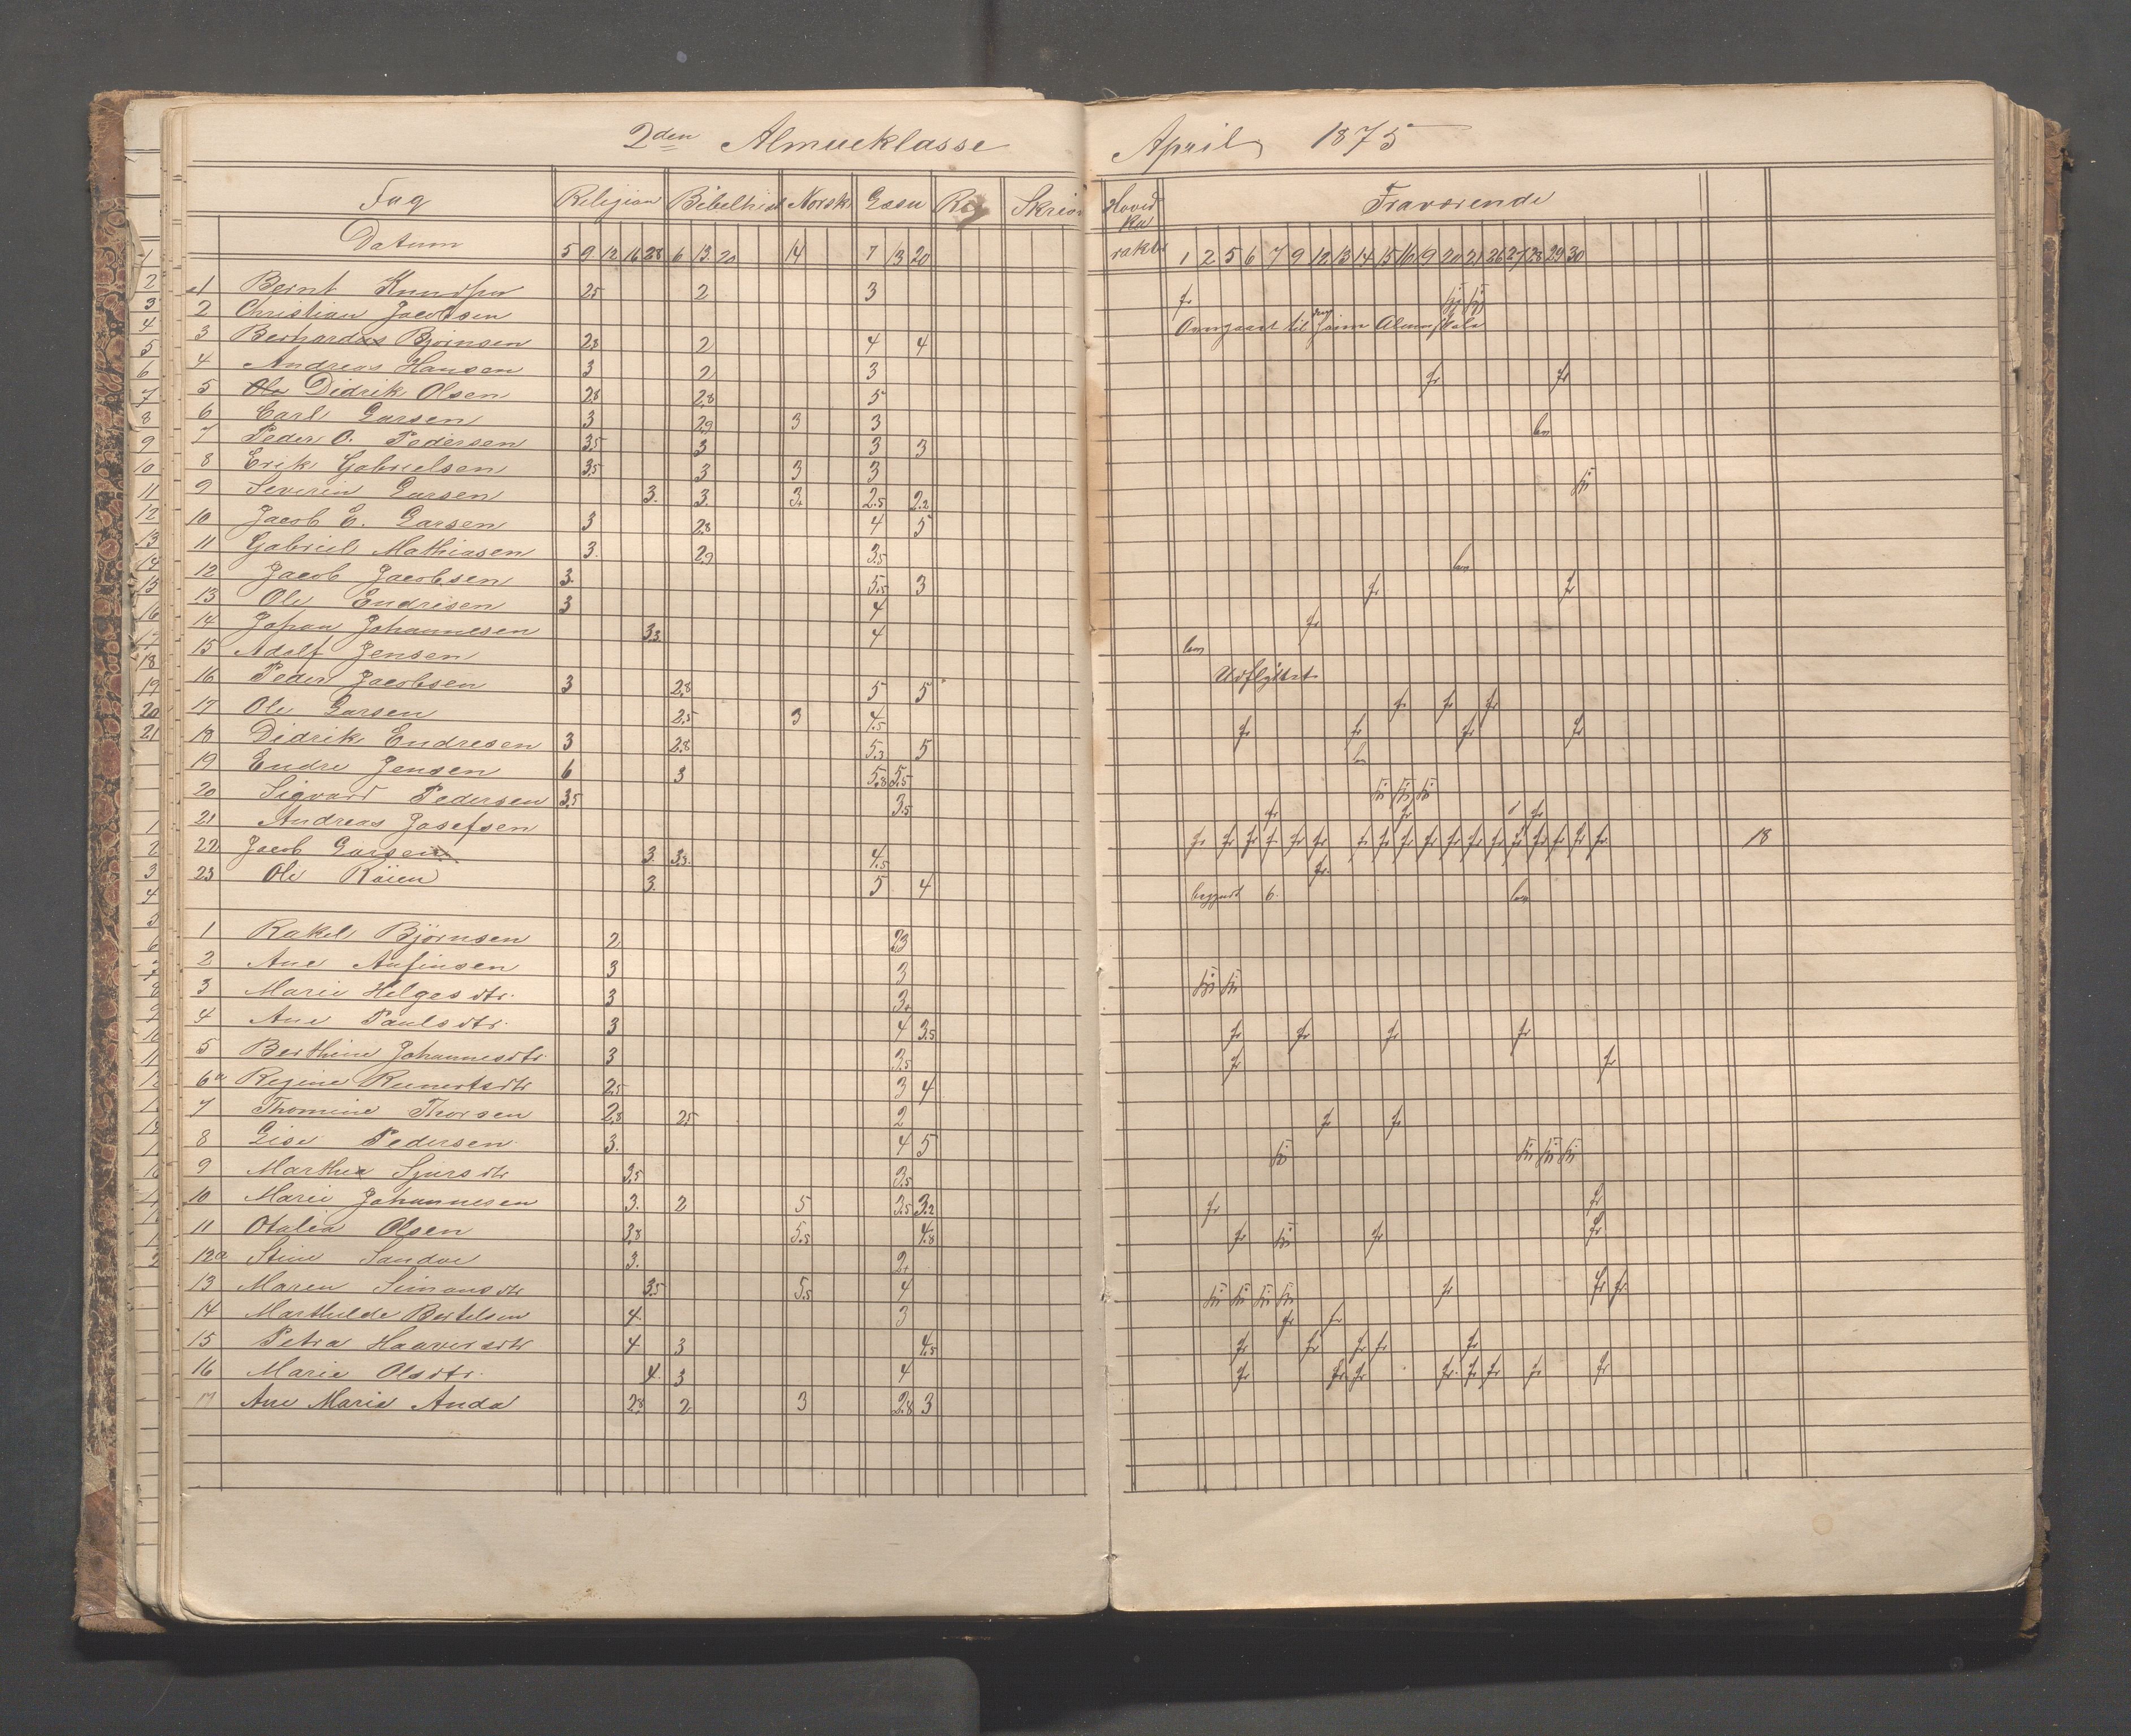 2den Almueklasse April 1875
Fag Religion Bibelhist Norsk Læsn Skrivn Hoved Ka rakter Fraværende
Datum 5 9 12 16 28 6 13 20 14 7 13 20 1 2 5 6 7 9 12 13 14 15 16 19 20 21 26 27 28 29 30
1 Bernt Knudsen 2.5 2 3 fr
2 Christian Jacobsen Overgaaet til den Almueskole
3 Berhard Bjørnsen 2.8 2 4 4
4 Andreas Hansen 3 2 3 fr fr
5 Ole Didrik Olsen 2.8 2.8 5
6 Carl Larsen 3 2.9 3 3
7 Peder O. Pedersen 3.5 3 3 3
8 Erik Gabrielsen 3.5 3 3 3
9 Severin Larsen 3. 3. 3+ 2.5 2.2
10 Jacob E. Larsen 3 2.8 4 5
11 Gabriel Mathiasen 3. 2.9 3.5
12 Jacob Jacobsen 3. 5.5 3 fr fr
13 Ole Endresen 3 4 fr
14 Johan Johannesen 3.3. 4
15 Adolf Jensen Udflyttet
16 Peder Jacobsen 3 2.8 5 5 fr fr fr
17 Ole Larsen 2.5 3 4.5 fr fr fr fr
18 Didrik Endresen 3 2.8 5.3 5
19 Endre Jensen 6 3 5.8 5.5
20 Sigvard Pedersen 3.5 3.5 fr fr fr
21 Andreas Josefsen fr fr fr fr fr fr fr fr fr fr fr fr fr fr fr fr fr fr 18
22 Jacob Larsen 3. 3.3. 4.5 fr.
23 Ole Röien 3. 5 4 begyndt 6.
1 Rakel Björnsen 2 2.3
2 Ane Anfinsen 3 3
3 Marie Helgesdtr. 3 3+
4 Ane Paulsdtr. 3 4 3.5 fr fr fr fr
5 Berthine Johannesdtr. 3 3.5 fr fr
6a Regine Reinertsdtr 2.5 3 4
7 Thomine Thorsen 2.8 2.5 2 fr fr
8 Lise Pedersen 3. 4 5
9 Martha Sjursdtr 3.5 3.5
10 Marie Johannesen 3. 2 5 3.5 3.2 fr fr
11 Otalia Olsen 3.8 5.5 4.8 fr fr fr
12a Stine Sandve 3. 2+
13 Maren Simonsdtr 3.5 5.5 4 fr fr fr.
14 Marthilde Bertelsen 4. 3 fr fr
15 Petra Haaversdtr 4 3 4.5 fr fr fr fr fr
16 Marie Olsdtr. 4. 3 4 fr fr. fr fr. fr fr fr fr
17 Ane Marie Anda 2.8 2 3 2.8 3